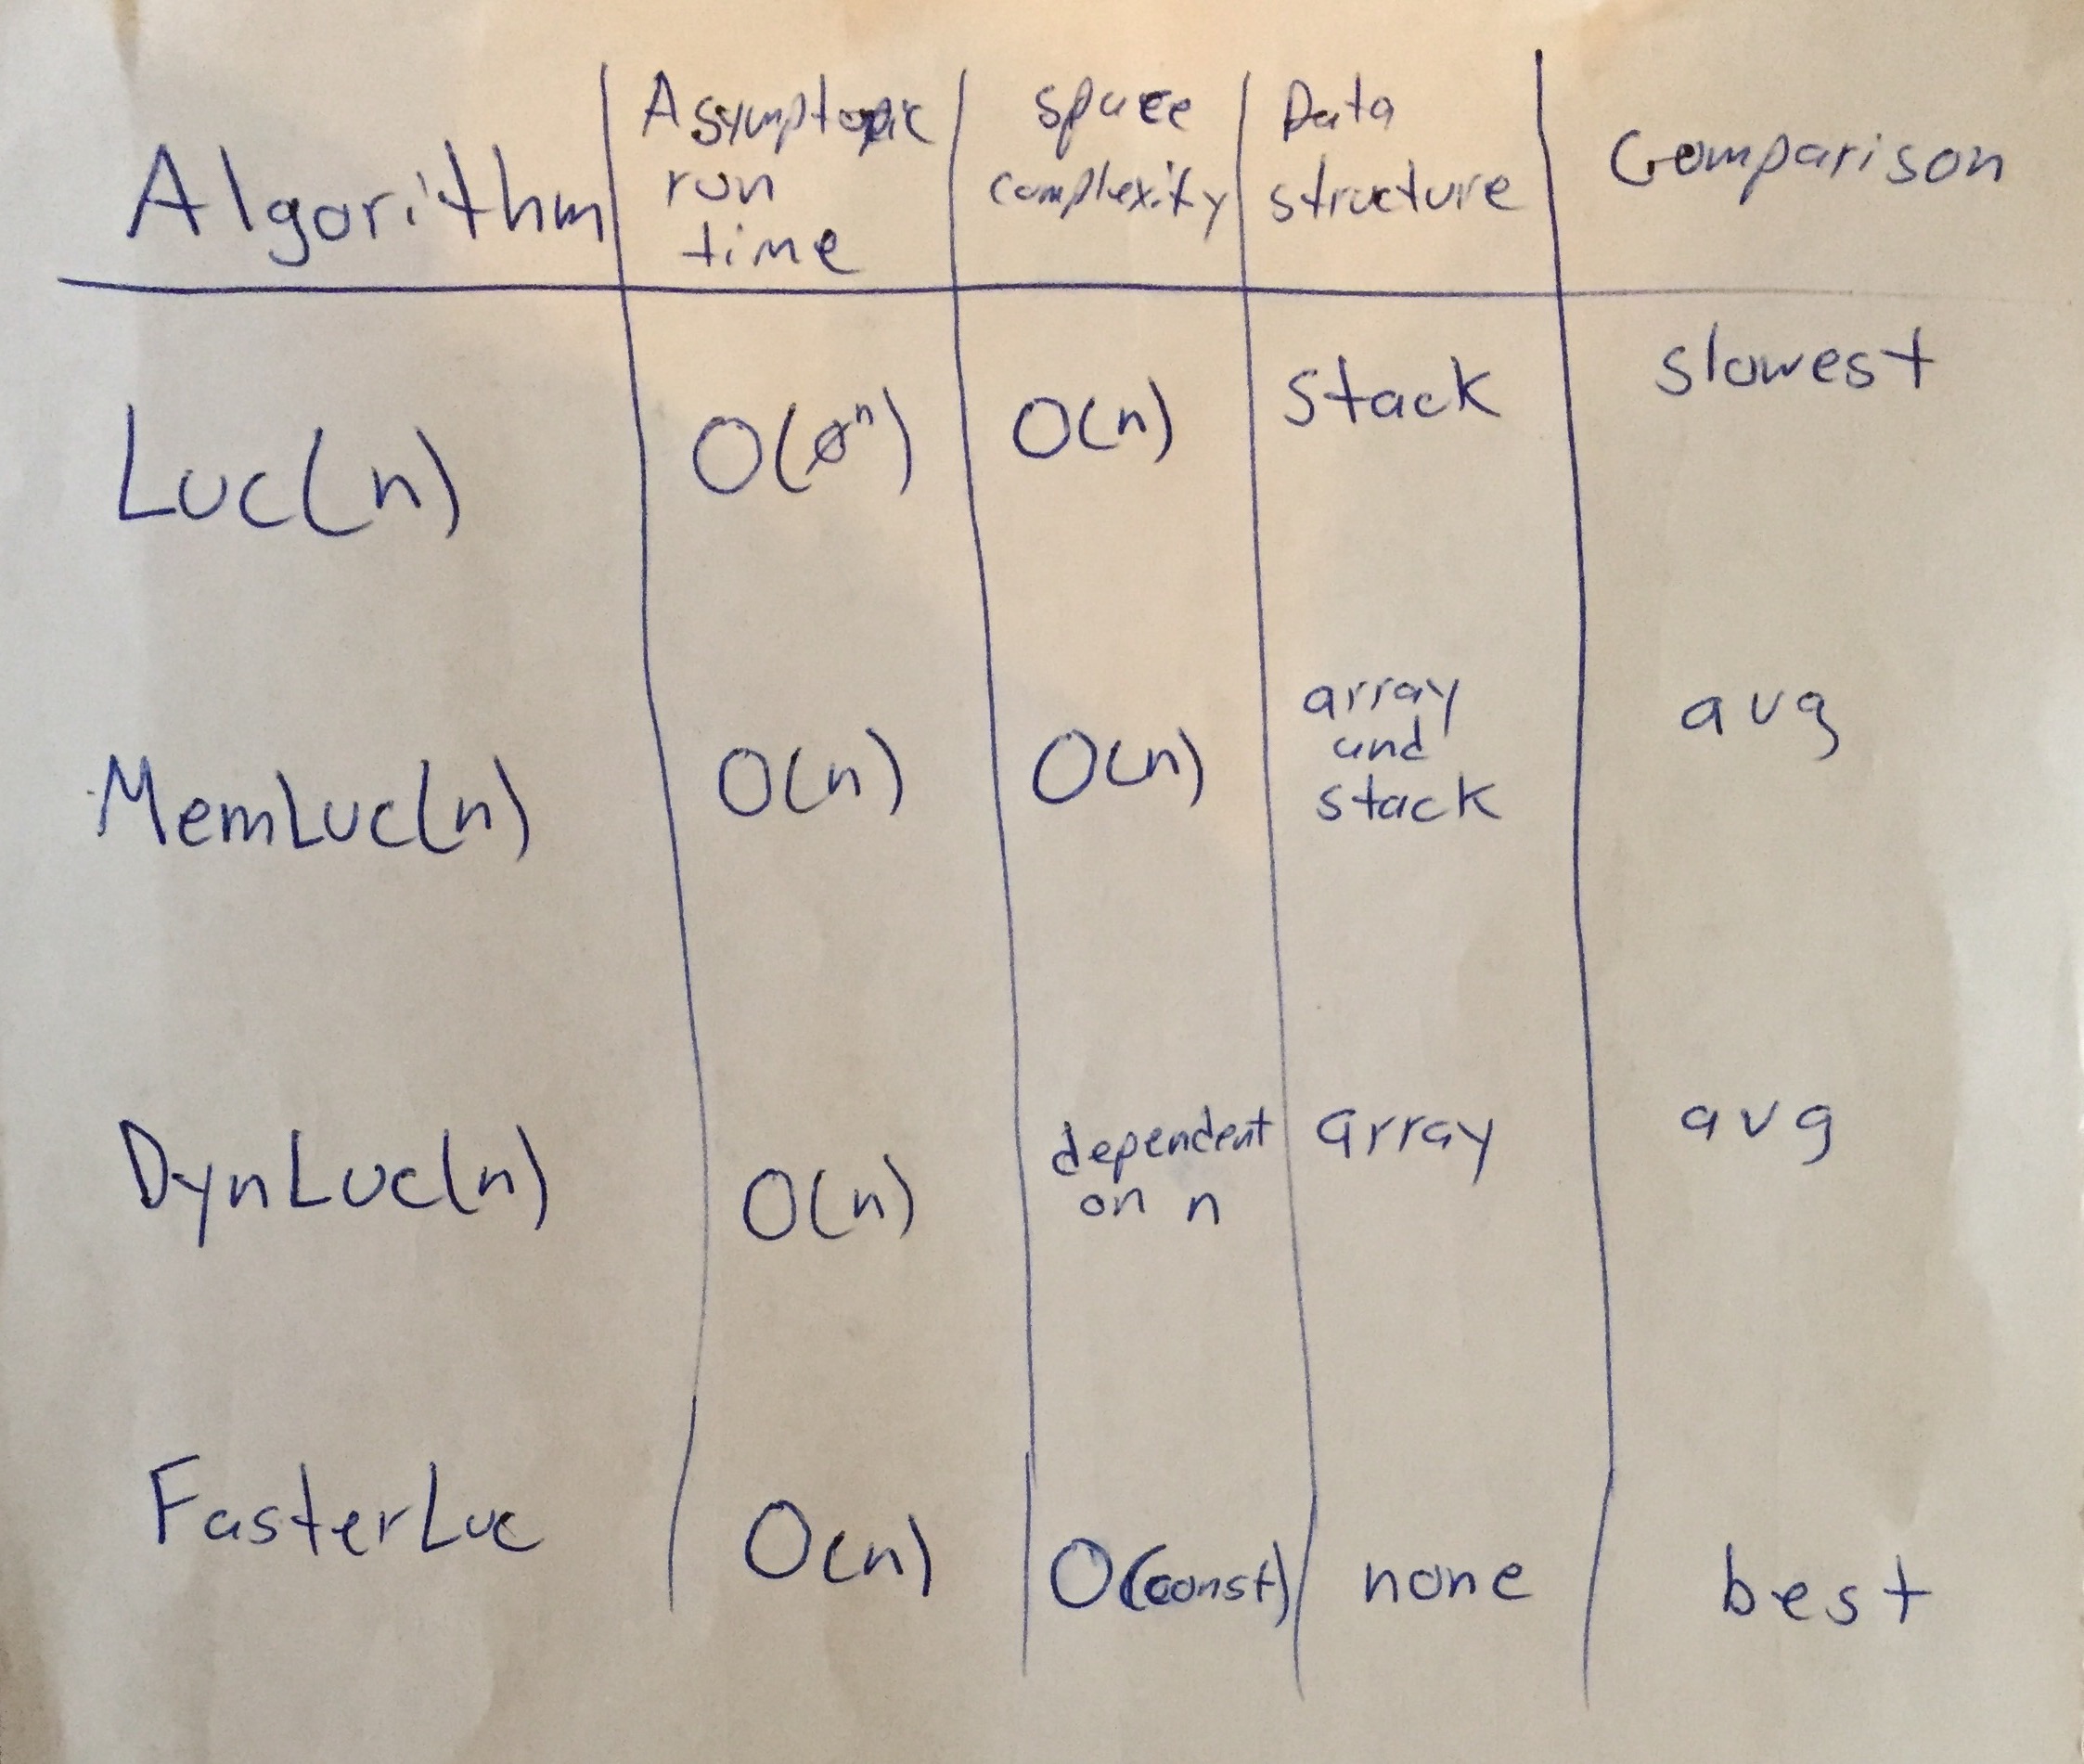 Algorithm | Asymptotic run time | space complexity | Data structure | Comparison
Luc(n) | O(ø^n) | O(n) | stack | slowest
MemLuc(n) | O(n) | O(n) | array and stack | avg
DynLuc(n) | O(n) | dependent on n | array | avg
FasterLuc | O(n) | O(const) | none | best